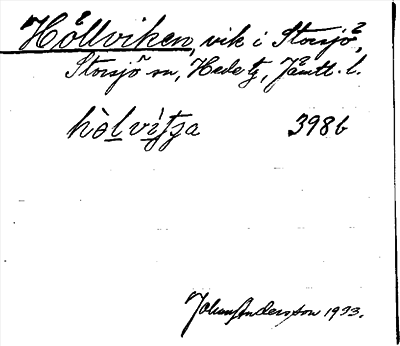 Hållviken, vik i Storsjö,
Storsjö sn, Hede tg, Jämtl. l.
hò̀lvìtʃa 398b
Johan Andersson 1933.